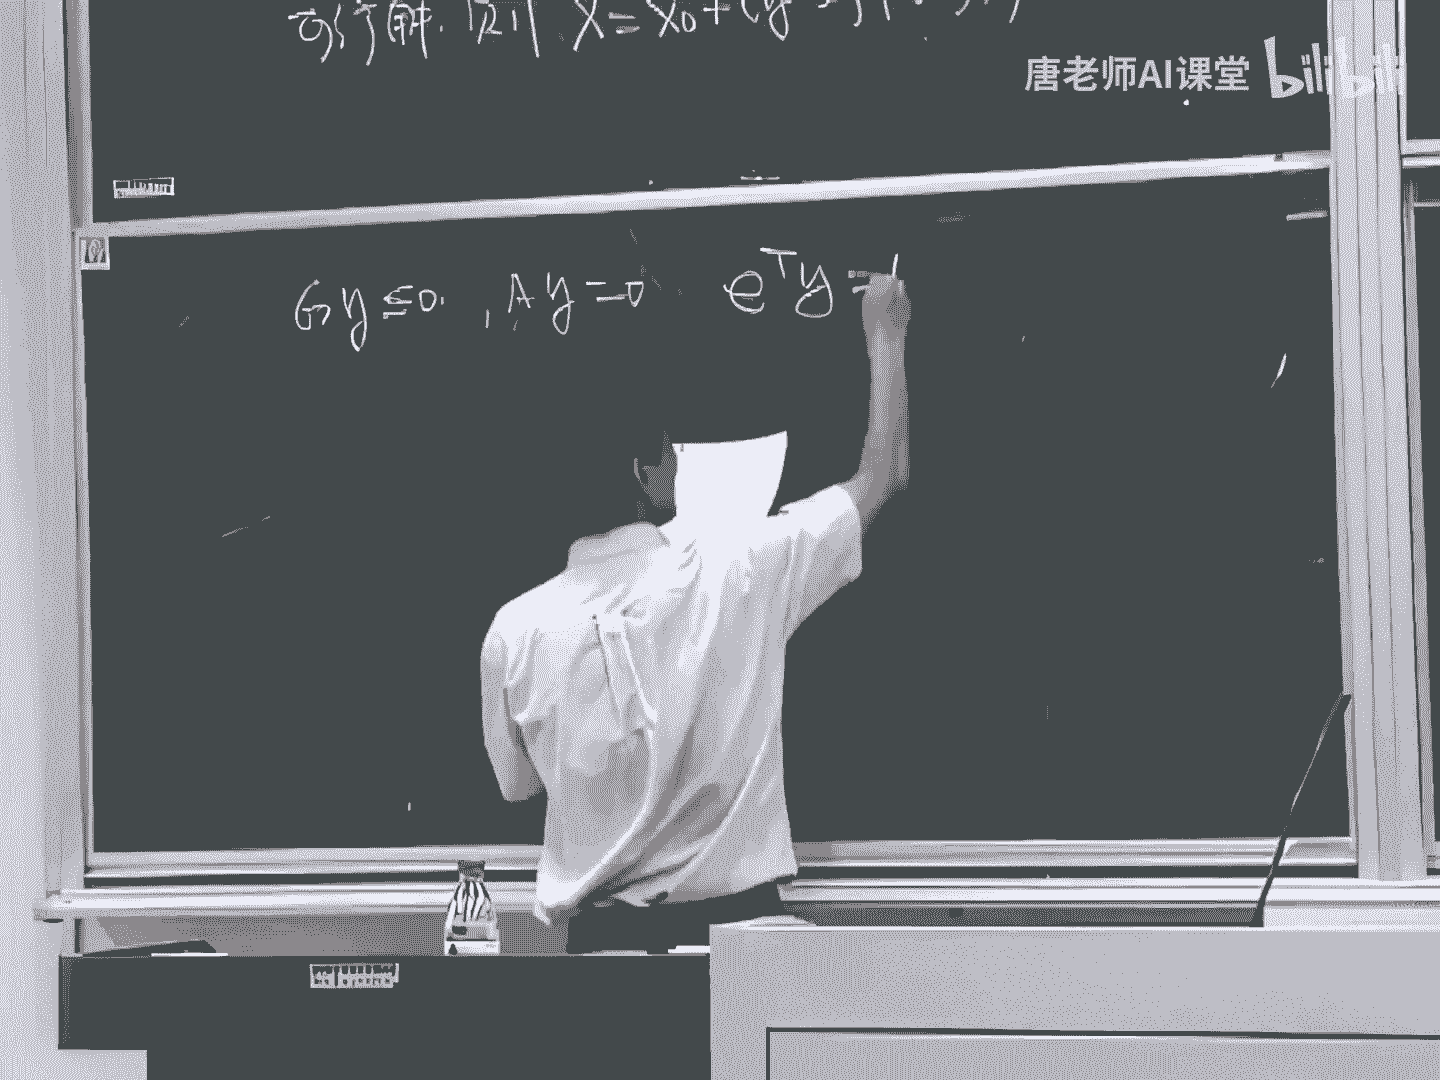 可行解. 则 X = X₀ + (y
唐老师AI课堂 bilibili
Gy ≤ 0. , Ay = 0 eᵀy =